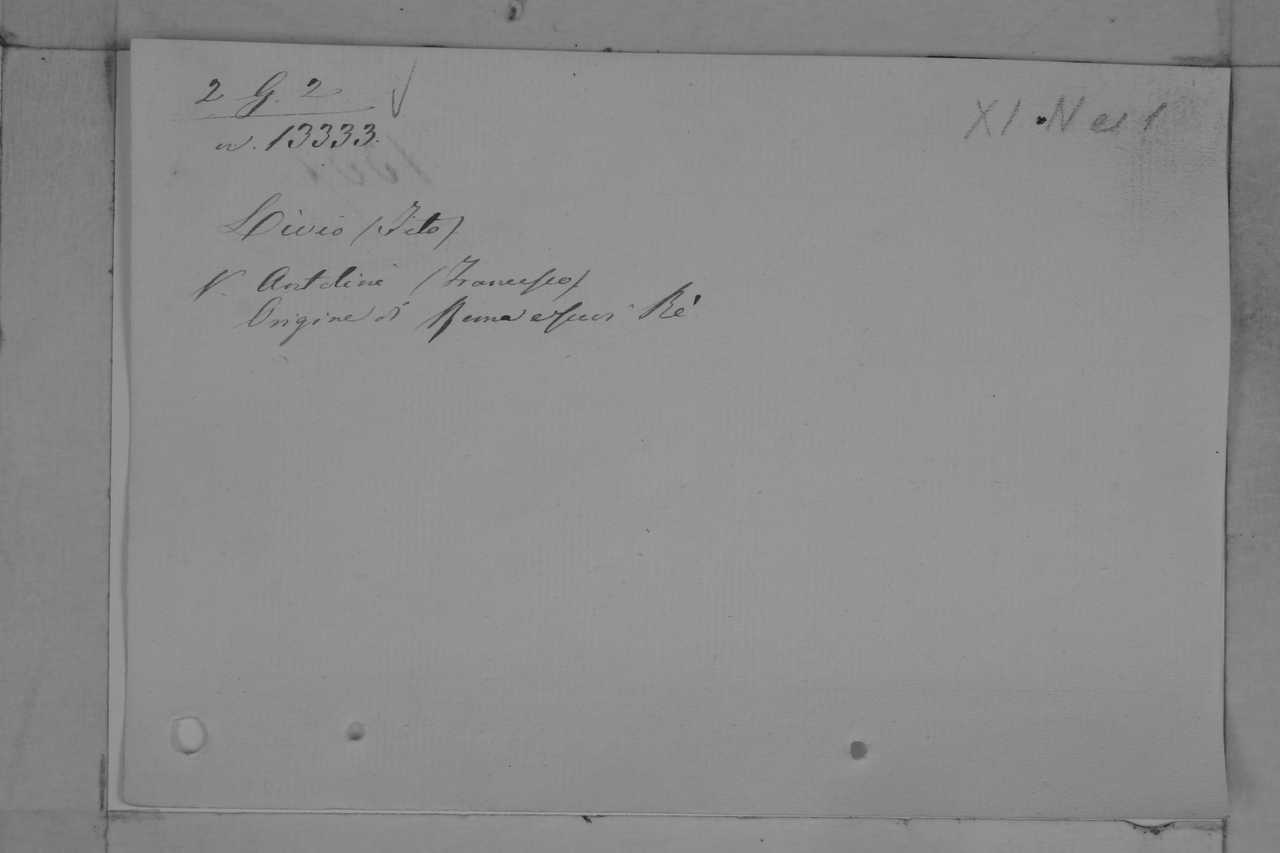 2 G. 2
XI. N a 1
n. 13333.
Livio (Tito)
V. Antolini (Francesco)
Origine di Roma e suoi Ré